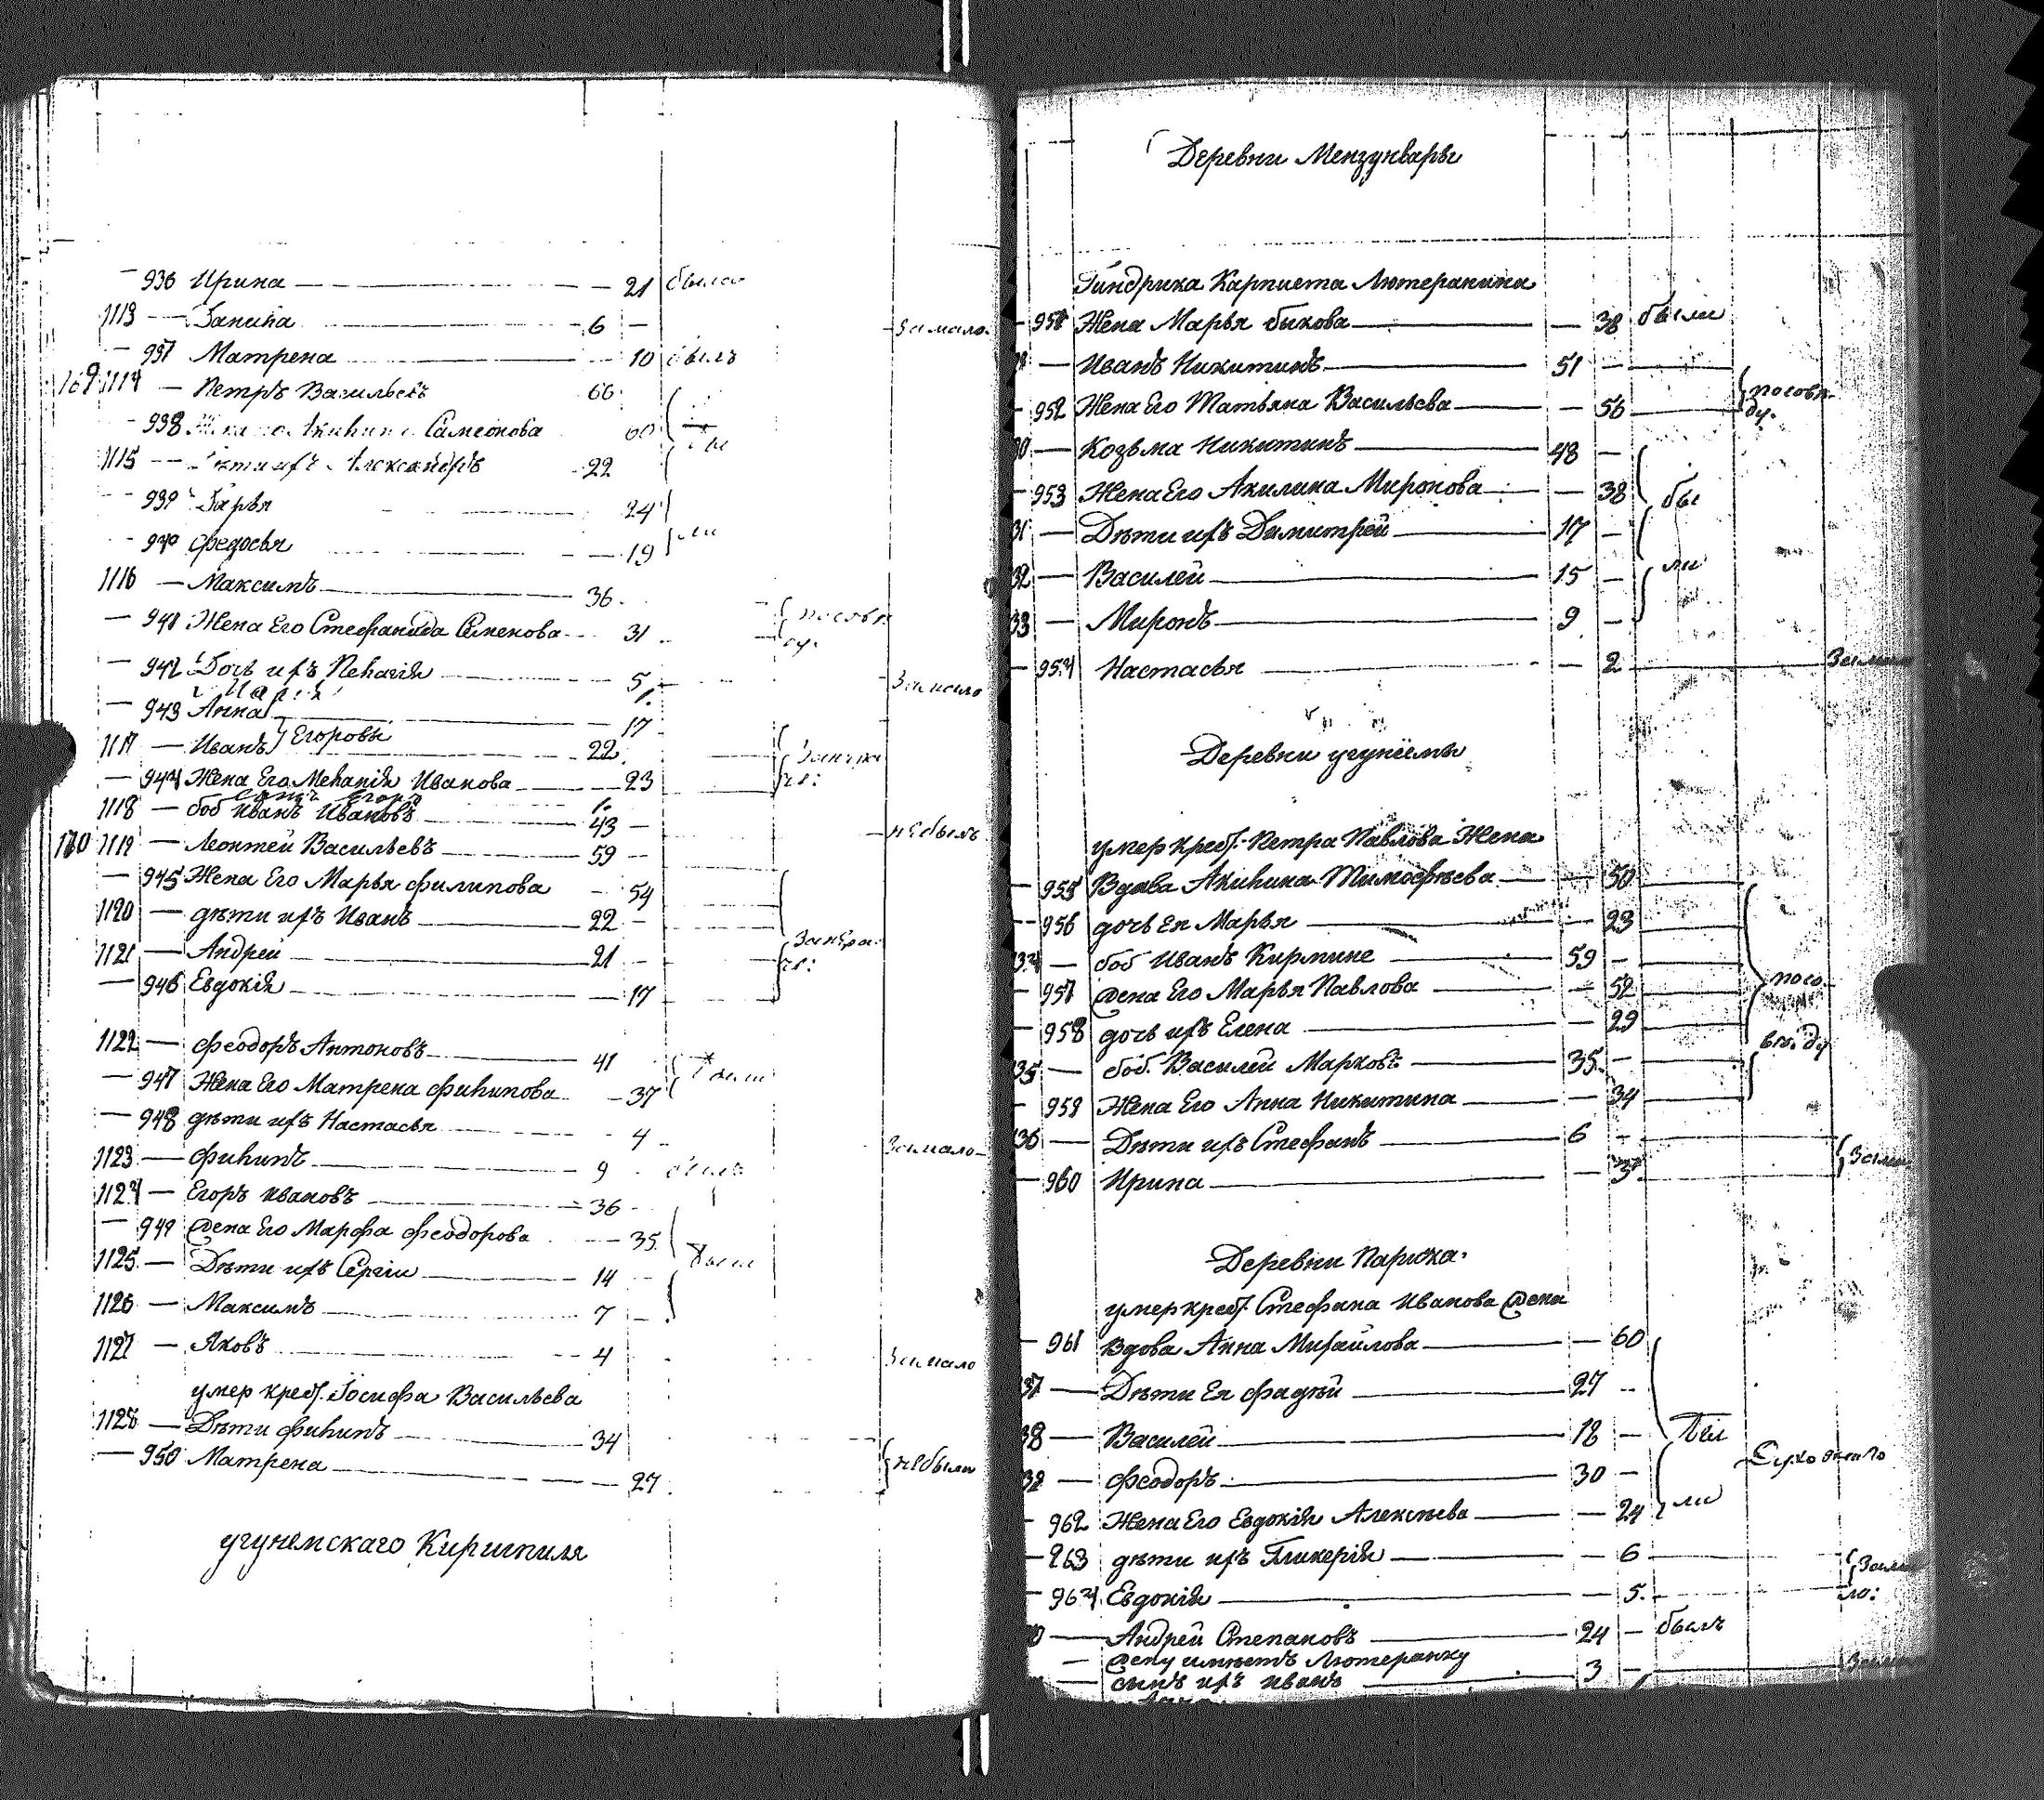 936 Ирина — 21 была
1113 — Данила — 6 — За мало.
937 Матрена — 10 былъ
169 1114 — Петръ Васильевъ 66
938 Жена Его Акилина Самсонова 60
1115 — Дѣти ихъ Александръ 22 бы
939 Дарья 24
940 Федосья — 19 ли
1116 — Максимъ — 36
941 Жена Его Стефанида Семенова 31
942 Дочь ихъ Пелагія — 5 За мало
Марія 1.
943 Анна — 17
1117 — Иванъ } Егоровы — 22
944 Жена Его Меланія Иванова — 23
сынъ Егоръ 1.
1118 — боб Иванъ Ивановъ 43 —
170 1119 — Леонтей Васильевъ — 59 — небылъ
945 Жена Его Марья Филипова — 54
1120 — дѣти ихъ Иванъ — 22 —
1121 — Андрей — 21 —
946 Евдокія — 17
1122 — Феодоръ Антоновъ — 41 были
947 Жена Его Матрена Филипова — 37
948 дѣти ихъ Настасья — 4 За мало
1123 — Филипъ — 9 былъ
1124 — Егоръ Ивановъ — 36
949 Жена Его Марфа Феодорова — 35 были
1125 — Дѣти ихъ Сергіи — 14
1126 — Максимъ — 7
1127 — Яковъ — 4 За мало
умер крест. Іосифа Васильева
1128 — Дѣти Филипъ — 34
950 Матрена — 27 небыли
угунемскаго Киршпиля
Деревни Мензунквары
Гиндрика Карпиета Лютеранина
951 Жена Марья быкова — 38 были
— Иванъ Никитинъ — 51 —
952 Жена Его Татьяна Васильева — 56 посовѣ-
ду.
— Козьма Никитинъ — 48 —
953 Жена Его Акилина Миронова — 38 бы
31 — Дѣти ихъ Димитрей — 17 —
32 — Василей — 15 — ли
33 — Миронъ — 9 —
954 Настасья — 2 За мало
Деревни угуніемы
умер крест. Петра Павлова Жена
955 Вдова Акилина Тимофѣева — 50
956 дочь Ея Марья — 23
34 — боб Иванъ Кирмине — 59 —
957 Жена Его Марья Павлова — 52 посо
958 дочь ихъ Елена — 29
35 — боб. Василей Марковъ — 35 —
959 Жена Его Анна Никитина — 34
36 — Дѣти ихъ Стефанъ — 6 —
960 Ирина — 3
Деревни Париска.
умер крест. Стефана Иванова Жена
961 Вдова Анна Михайлова — 60
37 — Дѣти Ея Фадѣй — 27
38 — Василей — 18 — бы
39 — Феодоръ — 30 —
962 Жена Его Евдокія Алексѣева — 24 ли
963 дѣти ихъ Гликерія — 6
964 Евдокія — 5
— Андрей Степановъ — 24 — былъ
— Жену имѣетъ Лютеранку
— сынъ ихъ Иванъ 3 —